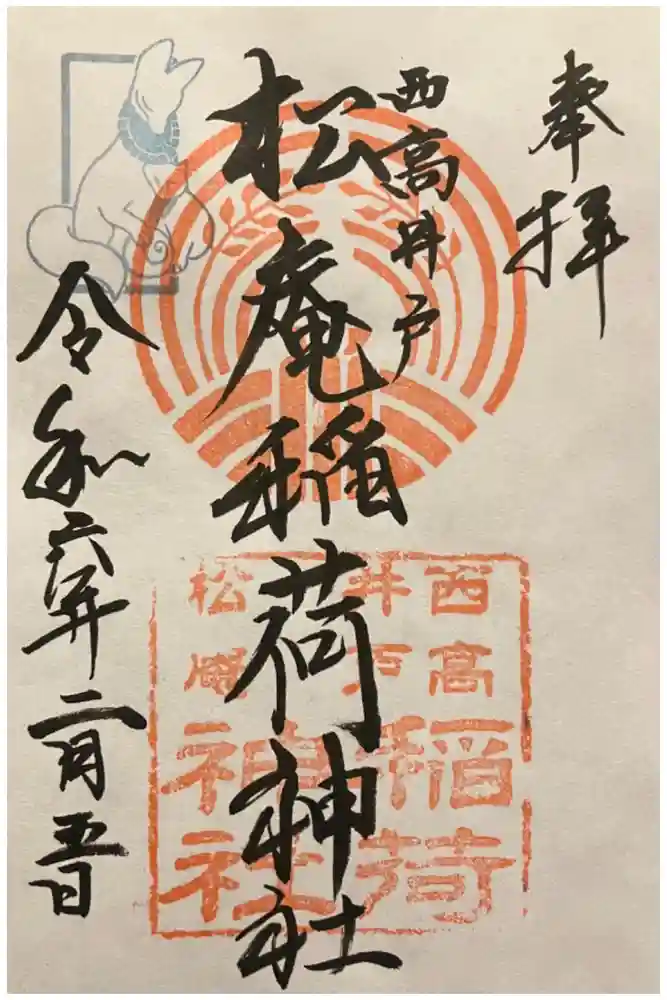 奉拝
西高井戸
松庵稲荷神社
令和六年二月五日
西高
井戸
松庵
稲荷
神社